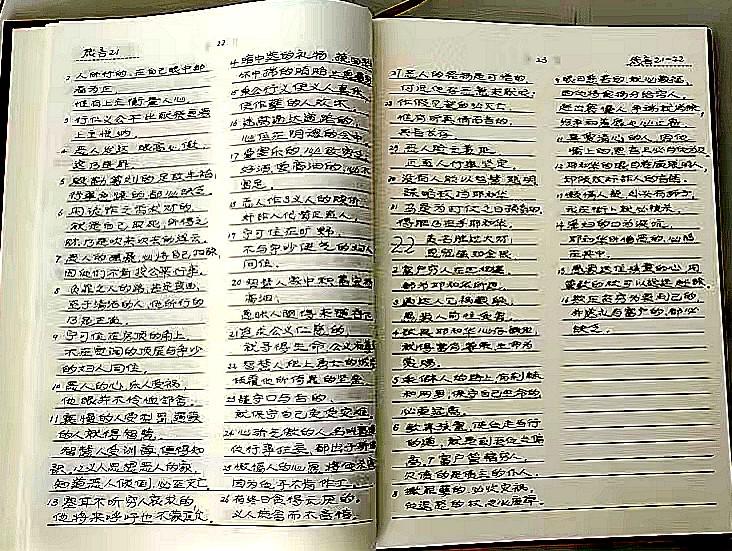 箴言21
22
2 人所行的,在自己眼中都
看为正
惟有上主衡量人心。
3 行仁义公平比献祭更蒙
上主悦纳
4 恶人发达,眼高心傲,
这乃是罪
5 殷勤筹划的足致丰裕,
行事急躁的都必缺乏
6 用诡诈之舌求财的,
就是自己取死,所得之
财乃是吹来吹去的浮云。
7 恶人的强暴必将自己扫除,
因他们不肯按公平行事。
8 负罪之人的路,甚是弯曲
至于清洁的人,他所行的
乃是正直
9 宁可住在房顶的角上,
不在宽阔的房屋与争吵
的妇人同住。
10 恶人的心,乐人受祸,
他眼并不怜恤邻舍。
11 亵慢的人受刑罚,愚蒙
的人就得智慧
智慧人受训诲,便得知
识,12 义人思想恶人的家,
知道恶人倾倒,必至灭亡
13 塞耳不听穷人哀求的
他将来呼吁也不蒙应允
14 暗中送的礼物,挽回
怀中搋的贿赂
15 秉公行义使义人喜乐,
使作孽的人败坏
16 迷离通达道路的,
必住在阴魂的会中
17 爱宴乐的,必致穷乏
好酒,爱膏油的,必不
富足。
18 恶人作了义人的赎价,
奸诈人代替正直人,
19 宁可住在旷野,
不与争吵使气的妇人
同住。
20 智慧人家中积蓄宝物
膏油,
愚昧人随得来随
21 追求公义仁慈的,
就寻得生命,公义
22 智慧人爬上勇士的城
倾覆他所倚靠的坚垒。
23 谨守口与舌的,
就保守自己免受灾难
24 心骄气傲的人,名叫亵慢
他行事狂妄,都出于
25 懒惰人的心愿,将他杀害
因为他手不肯作工
26 有终日贪得无厌的。
义人施舍而不吝惜。
23
27 恶人的祭物是可憎的,
何况他存恶意来献呢,
28 作假见证的必灭亡
惟有听真情而言的,
其言长存
29 恶人脸无羞耻
正直人行事坚定
30 没有人能以智慧、聪明、
谋略敌挡耶和华
31 马是为打仗之日预备的
得胜乃在乎耶和华。
22 美名胜过大财
恩宠强如金银
2 富户穷人在世相遇
都为耶和华所造
3 通达人见祸藏躲
愚蒙人前往受害
4 敬畏耶和华心存谦卑,
就得富有、尊荣、生命为
赏赐。
5 乖僻人的路上有荆棘
和网罗,保守自己生命的
必要远离。
6 教养孩童,使他走当行
的道,就是到老他也不偏
离,7 富户管辖穷人
欠债的是债主的仆人,
8 撒罪孽的,必收灾祸,
他逞怒的杖也必废掉
箴言21-22
9 眼目慈善的,就必蒙福,
因他将食物分给穷人,
10 赶出亵慢人争端就消除,
纷争和羞辱也必止息
11 喜爱清心的人,因他
嘴上的恩言王必与他为友
12 耶和华的眼目眷顾聪明人,
却倾败奸诈人的言语。
13 懒惰人说:外头有狮子,
我在街上就必被杀。
14 淫妇的口为深坑,
耶和华所憎恶的,必陷
在其中,
15 愚蒙迷住孩童的心,用
管教的杖可以远远赶除,
16 欺压贫穷为要利己的
并送礼与富户的,都必
缺乏。